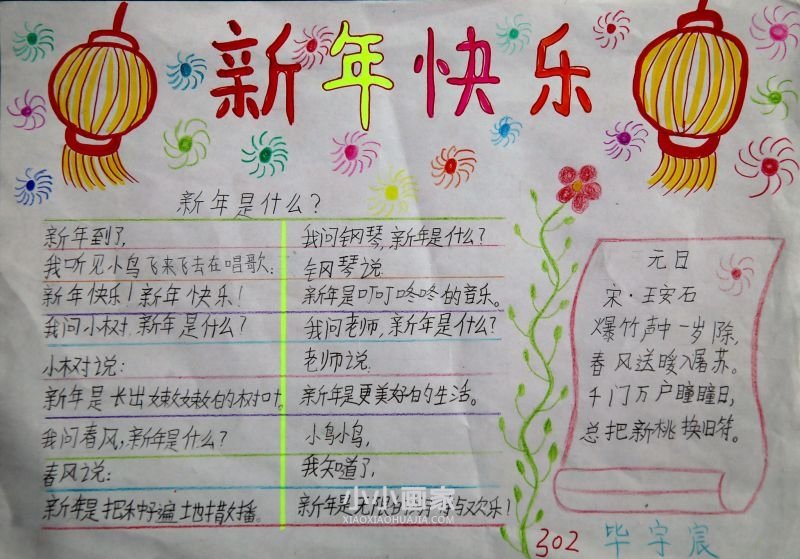 新年快乐
新年是什么？
新年到了，
我听见小鸟飞来飞去在唱歌：
新年快乐！新年快乐！
我问小树，新年是什么？
小树说：
新年是长出嫩嫩的树叶。
我问春风，新年是什么？
春风说：
新年是把种子遍地撒播。
我问钢琴，新年是什么？
钢琴说
新年是叮叮咚咚的音乐。
我问老师，新年是什么？
老师说
新年是更美好的生活。
小鸟小鸟，
我知道了，
新年是无限的与欢乐！
元日
宋·王安石
爆竹声中一岁除，
春风送暖入屠苏。
千门万户曈曈日，
总把新桃换旧符。
302 毕宇宸
小小画家
XIAOXIAOHUAJIA.COM